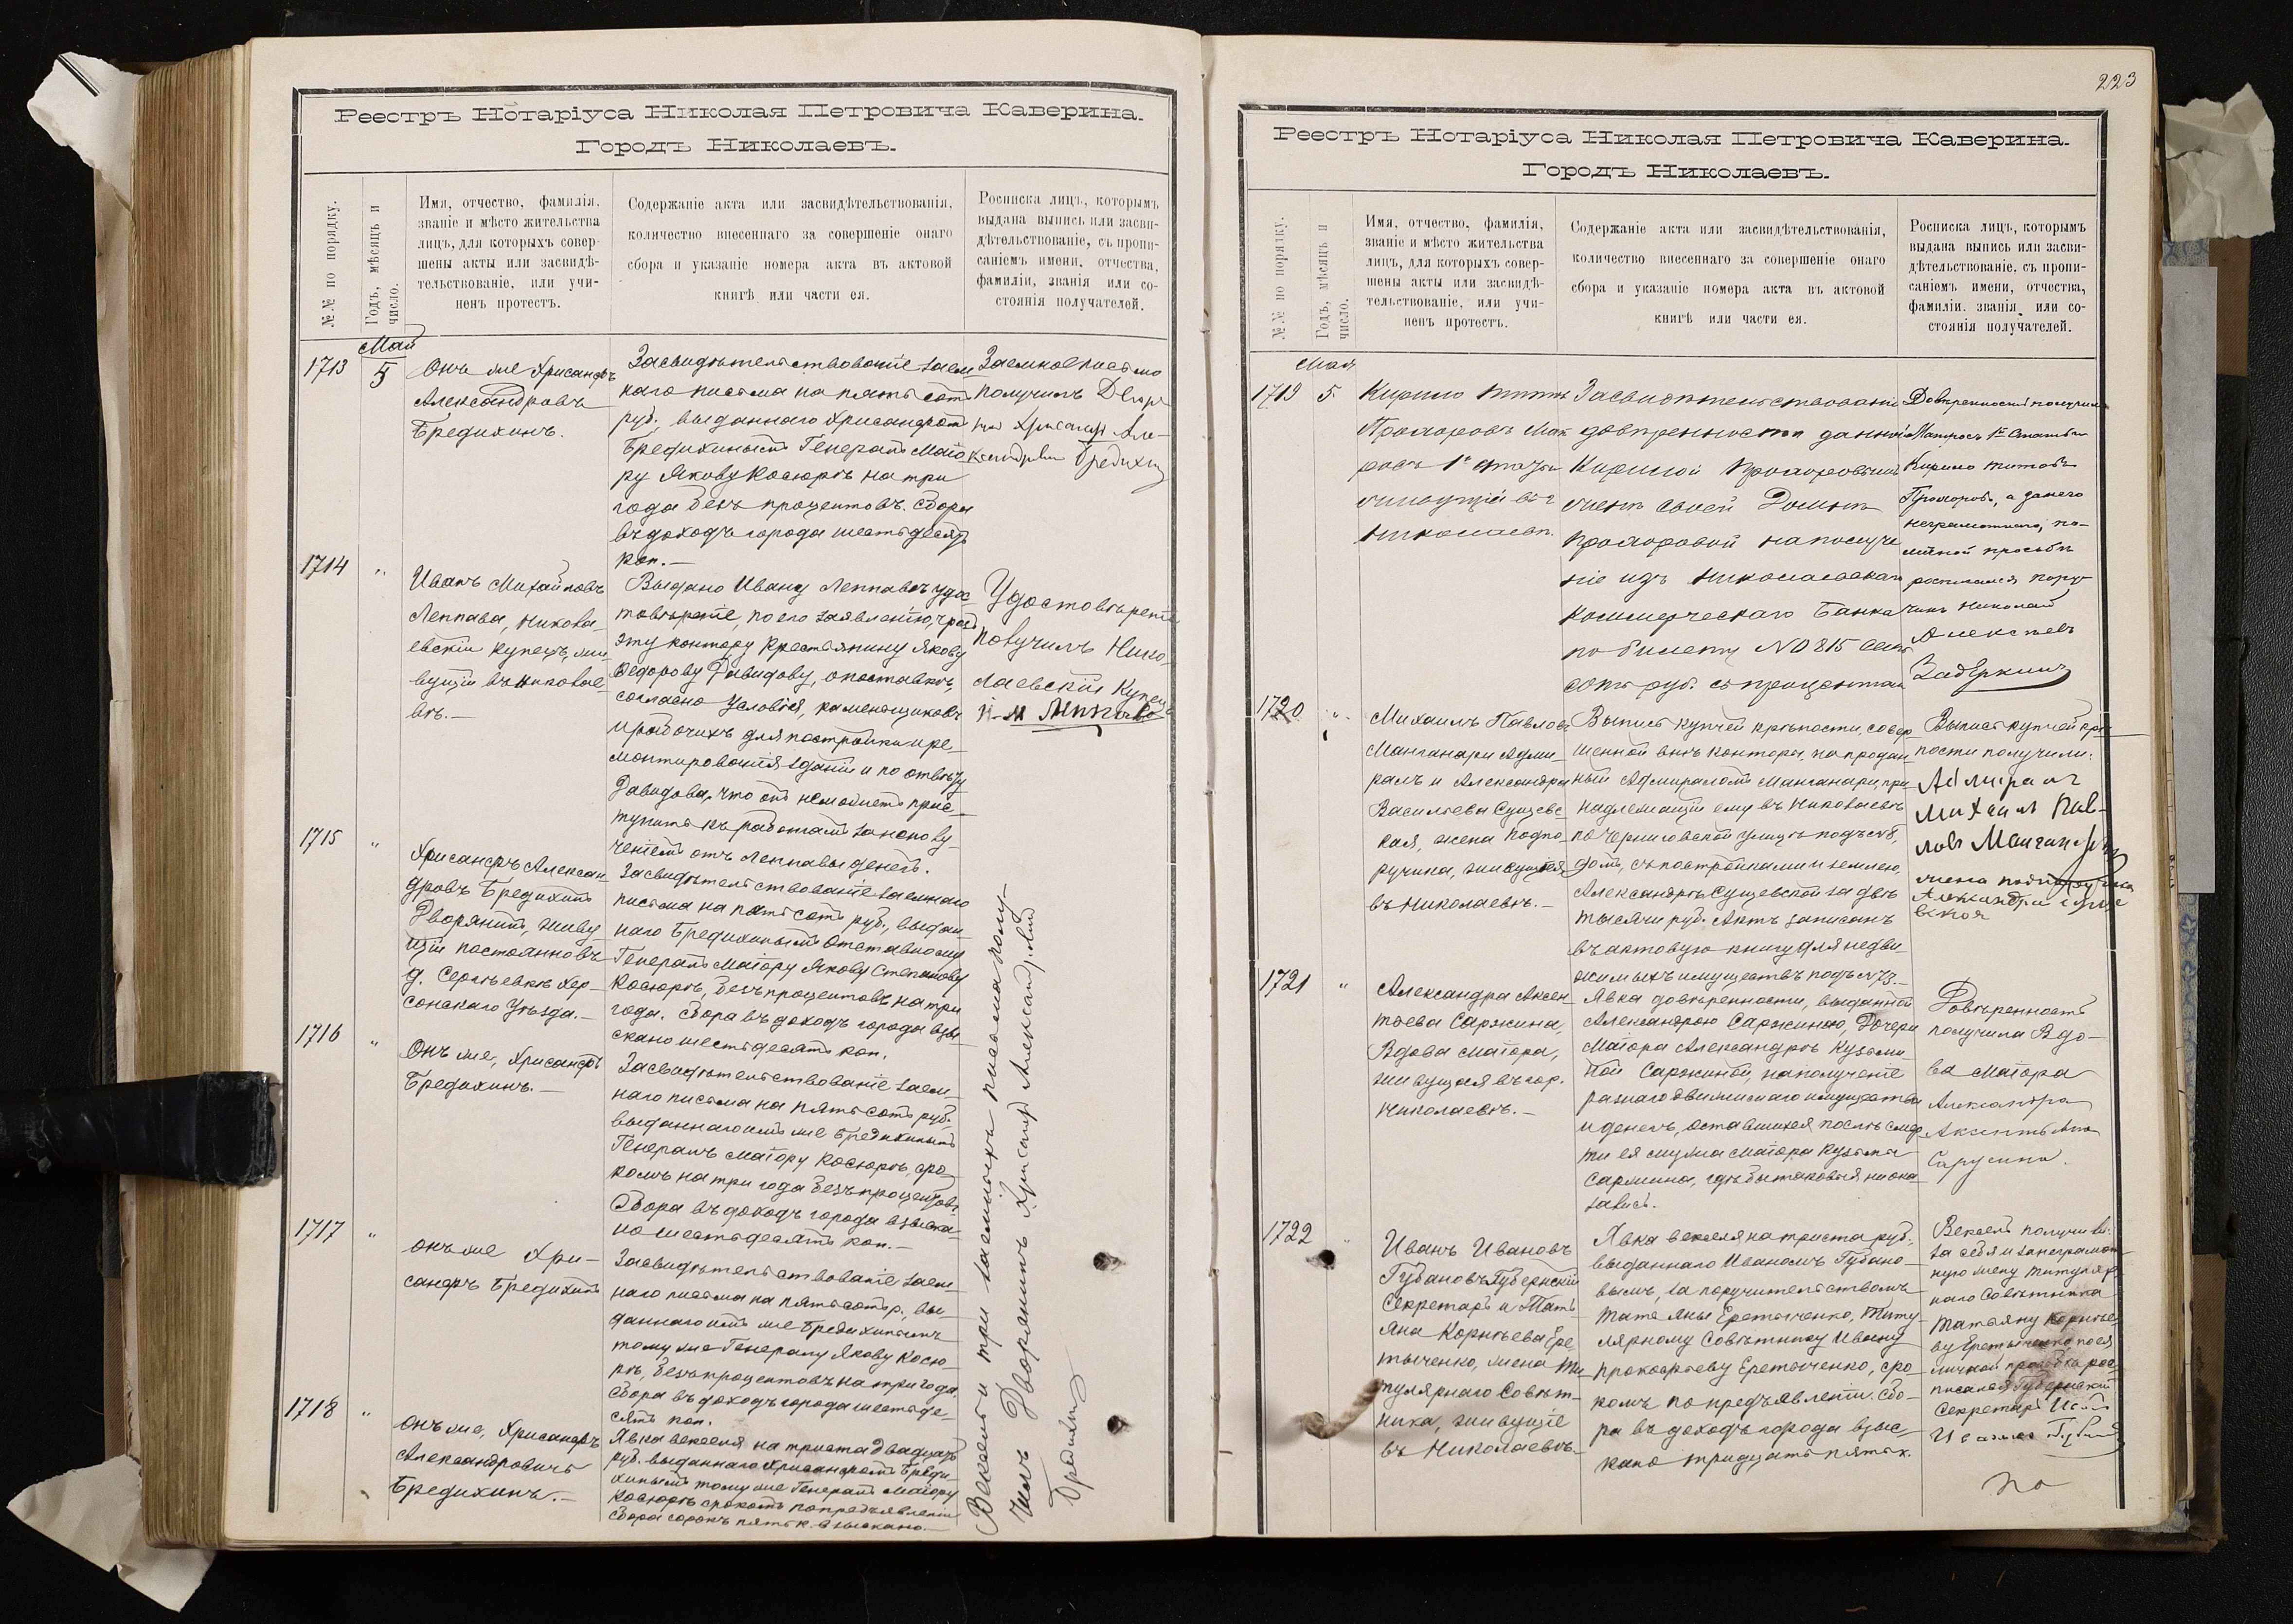 Реестръ Нотаріуса Николая Петровича Каверина.
Городъ Николаевъ.
№№ по порядку.
Годъ, мѣсяцъ и
число.
Имя, отчество, фамилія,
званіе и мѣсто жительства
лицъ, для которыхъ совер-
шены акты или засвидѣ-
тельствованіе, или учи-
ненъ протестъ.
Содержаніе акта или засвидѣтельствованія,
количество внесеннаго за совершеніе онаго
сбора и указаніе номера акта въ актовой
книгѣ или части ея.
Росписка лицъ, которымъ
выдана выпись или засви-
дѣтельствованіе, съ пропи-
саніемъ имени, отчества,
фамиліи, званія или со-
стоянія получателей.
Май
1713
5
Онъ же Хрисанфъ
Александровъ
Бредихинъ.
Засвидѣтельствованіе заем
наго письма на пятьсотъ
руб., выданнаго Хрисанфомъ
Бредихинымъ Генералъ Маіо
ру Якову Косюрѣ на три
года безъ процентовъ. Сбора
въ доходъ города шестьдесятъ
коп.—
Заемное письмо
получилъ Дворя-
нинъ Хрисанфъ Але-
ксандровъ Бредихинъ
1714
"
Иванъ Михайловъ
Леппава, Никола-
евскій купецъ, жи-
вущій въ Николае-
вѣ.—
Выдано Ивану Леппавѣ удос-
товѣреніе, по его заявленію, чрезъ
эту контору крестьянину Якову
Федорову Давидову, о поставкѣ,
согласно условія, каменщиковъ
и рабочихъ для постройки и ре-
монтированія зданій и по отвѣту
Давидова, что онъ неможетъ прис-
тупить къ работамъ за неполу-
ченіемъ отъ Леппавы денегъ.
Удостовѣреніе
получилъ Нико-
лаевскій Купецъ
И. М Леппава
1715
"
Хрисанфъ Алексан-
дровъ Бредихинъ
Дворянинъ, живу-
щій постоянно въ
д. Сергѣевкѣ Хер-
сонскаго уѣзда.—
Засвидѣтельствованіе заемнаго
письма на пятьсотъ руб., выдан-
наго Бредихинымъ Отставному
Генералъ Маіору Якову Степанову
Косюрѣ, безъ процентовъ на три
года. Сбора въ доходъ города взы-
скано шестьдесятъ коп.
1716
"
Онъ же, Хрисанфъ
Бредихинъ.—
Засвидѣтельствованіе заем-
наго письма на пятьсотъ руб.
выданнаго имъ же Бредихинымъ
Генералъ Маіору Косюрѣ, сро-
комъ на три года безъ процентовъ
Сбора въ доходъ города взыска-
но шестьдесятъ коп.—
1717
"
Онъ же Хри-
санфъ Бредихинъ
Засвидѣтельствованіе заем-
наго письма на пятьсотъ р., вы-
даннаго имъ же Бредихинымъ
тому же Генералу Якову Косю-
рѣ, безъ процентовъ на три года.
Сбора въ доходъ города шестьде-
сятъ коп.
1718
"
Онъ же, Хрисанфъ
Александровичъ
Бредихинъ.—
Явка векселя на триста двадцать
руб. выданнаго Хрисанфомъ Бреди-
хинымъ тому же Генералъ Маіору
Косюрѣ срокомъ по предъявленіи
Сбора сорокъ пять к. взыскано.—
Вексель и три заемныхъ письма полу-
чилъ Дворянинъ Хрисанфъ Александровъ
Бредихинъ
223
Реестръ Нотаріуса Николая Петровича Каверина.
Городъ Николаевъ.
№№ по порядку.
Годъ, мѣсяцъ и
число.
Имя, отчество, фамилія,
званіе и мѣсто жительства
лицъ, для которыхъ совер-
шены акты или засвидѣ-
тельствованіе, или учи-
ненъ протестъ.
Содержаніе акта или засвидѣтельствованія,
количество внесеннаго за совершеніе онаго
сбора и указаніе номера акта въ актовой
книгѣ или части ея.
Росписка лицъ, которымъ
выдана выпись или засви-
дѣтельствованіе, съ пропи-
саніемъ имени, отчества,
фамиліи, званія или со-
стоянія получателей.
Май
1719
5
Кирило Титовъ
Прохоровъ Мат
росъ 1й статьи
живущій въ г
Николаевѣ.
Засвидѣтельствованіе
довѣренности данной
Кирилой Прохоровымъ
женѣ своей Домнѣ
Прохоровой на получе
ніе изъ Николаевскаго
Коммерческаго Банка
по билету № 815 семь
сотъ руб. съ процентами
Довѣренность получилъ
Матросъ 1й Статьи
Кирило Титовъ
Прохоровъ, а за него
неграмотнаго, по
личной просьбѣ
росписался пору-
чикъ Николай
Алексѣевъ
Задеркинъ
1720
"
Михаилъ Павловъ
Манганари Адми-
ралъ и Александра
Васильева Сущевс-
кая, жена подпо-
ручика, живущіе
въ Николаевѣ.—
Выпись купчей крѣпости, совер-
шенной внѣ конторы, на продан-
ный Адмираломъ Манганари, при-
надлежащій ему въ Николаевѣ
по Черниговской улицѣ подъ №8,
домъ, съ постройками и землею,
Александрѣ Сущевской за двѣ
тысячи руб. Актъ записанъ
въ актовую книгу для недви-
жимыхъ имуществъ подъ №73.—
Выпись купчей крѣ-
пости получили:
Адмиралъ
Михаилъ Пав-
ловъ Манганари
жена подпоручика
Александра Сущев
ская
1721
"
Александра Аксен-
тьева Саржина,
Вдова Маіора,
живущая въ гор.
Николаевѣ.—
Явка довѣренности, выданной
Александрою Саржиною, Дочери
Маіора Александрѣ Кузьми-
ной Саржиной, на полученіе
разнаго движимаго имущества
и денегъ, оставшихся послѣ смер-
ти ея мужа Маіора Кузьмы
Саржина, гдѣ бы таковыя не ока-
зались.
Довѣренность
получила Вдо-
ва Маіора
Александра
Аксентьева
Саржина.
1722
"
Иванъ Ивановъ
Губановъ Губернскій
Секретарь и Тать
яна Корнѣева Ере
тыченко, жена Ти
тулярнаго Совѣт-
ника, живущіе
въ Николаевѣ.
Явка векселя на триста руб.
выданнаго Иваномъ Губано-
вымъ, за поручительствомъ
Татьяны Еретыченко, Титу-
лярному Совѣтнику Ивану
Прокофьеву Еретыченко, сро-
комъ по предъявленіи. Сбо-
ра въ доходъ города взыс-
кано тридцать пять к.
Вексель получилъ
за себя и за неграмот-
ную жену Титуляр-
наго Совѣтника
Татьяну Корнѣе-
ву Еретыченко по ея
личной просьбѣ рос-
писался Губернскій
Секретарь Иванъ
Ивановъ Губановъ
По